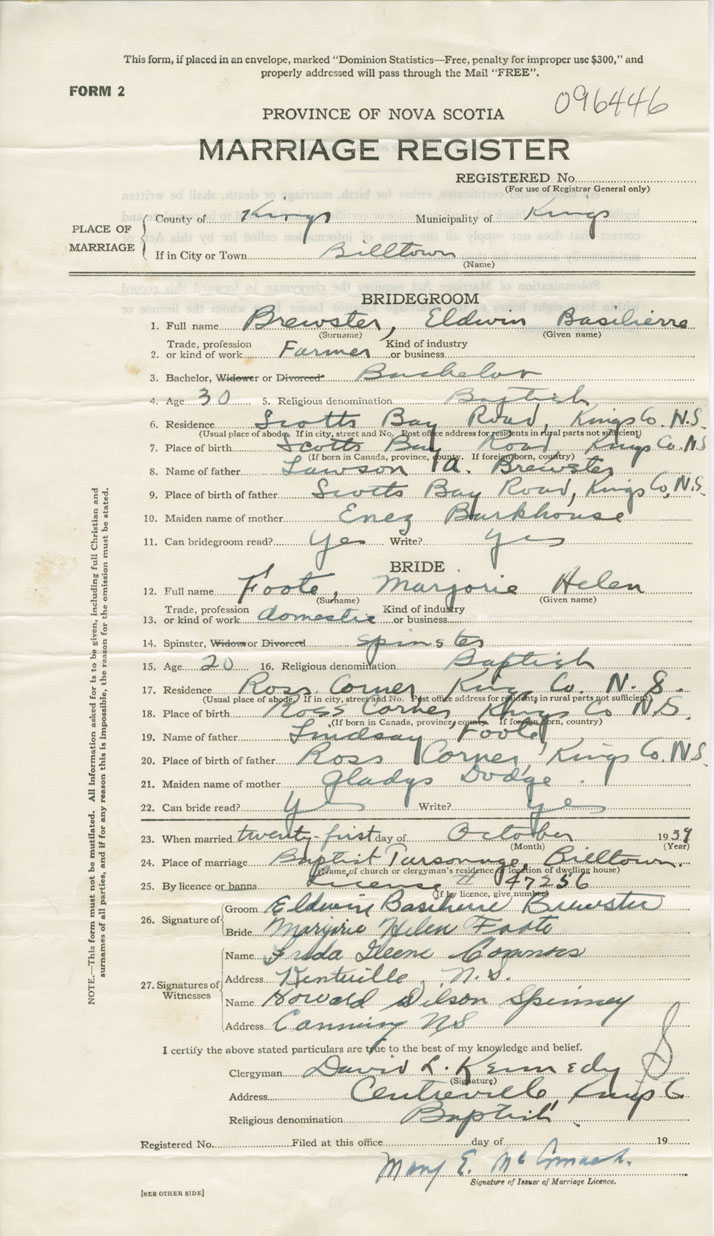 This form, if placed in an envelope, marked "Dominion Statistics—Free, penalty for improper use $300," and
properly addressed will pass through the Mail "FREE".
FORM 2
096446
PROVINCE OF NOVA SCOTIA
MARRIAGE REGISTER
REGISTERED No.
(For use of Registrar General only)
PLACE OF MARRIAGE
County of Kings Municipality of Kings
If in City or Town Billtown
(Name)
BRIDEGROOM
1. Full name Brewster, Eldwin
(Surname) (Given name)
2. Trade, profession or kind of work Farmer Kind of industry or business
3. Bachelor, Widower or Divorced Bachelor
4. Age 30 5. Religious denomination Baptist
6. Residence Scotts Bay Road, Kings Co. N.S.
(Usual place of abode. If in city, street and No. Post office address for residents in rural parts not sufficient)
7. Place of birth Scotts Bay Road Kings Co. N.S
(If born in Canada, province, county. If foreign born, country)
8. Name of father Lawson A. Brewster
9. Place of birth of father Scotts Bay Road, Kings Co, N.S.
10. Maiden name of mother Enez Barkhouse
11. Can bridegroom read? Yes Write? Yes
BRIDE
12. Full name Foote, Marjorie Helen
(Surname) (Given name)
13. Trade, profession or kind of work domestic Kind of industry or business
14. Spinster, Widow or Divorced Spinster
15. Age 20 16. Religious denomination Baptist
17. Residence Ross Corner, King Co. N. S.
(Usual place of abode. If in city, street and No. Post office address for residents in rural parts not sufficient)
18. Place of birth Ross Corner Kings Co N.S.
(If born in Canada, province, county. If foreign born, country)
19. Name of father Lindsay Foote
20. Place of birth of father Ross Corner, Kings Co. N.S.
21. Maiden name of mother Gladys Dodge.
22. Can bride read? Yes Write? Yes
23. When married twenty-first day of October 1939
(Month) (Year)
24. Place of marriage Baptist Parsonage, Billtown.
(Name of church or clergyman's residence or location of dwelling house)
25. By licence or banns License # 47256
(If by licence, give number)
26. Signature of
Groom Eldwin Brewster
Bride Marjorie Helen Foote
27. Signatures of Witnesses
Name Freda Ilene Connors
Address Kentville, N.S.
Name Howard Wilson Spinney
Address Canning NS
I certify the above stated particulars are true to the best of my knowledge and belief.
Clergyman David L. Kennedy
(Signature)
Address Centreville, Kings Co
Religious denomination Baptist
Registered No. Filed at this office day of 19
Mary E. McCormack.
Signature of Issuer of Marriage Licence.
[SEE OTHER SIDE]
NOTE.—This form must not be mutilated. All information asked for is to be given, including full Christian and
surnames of all parties, and if for any reason this is impossible, the reason for the omission must be stated.